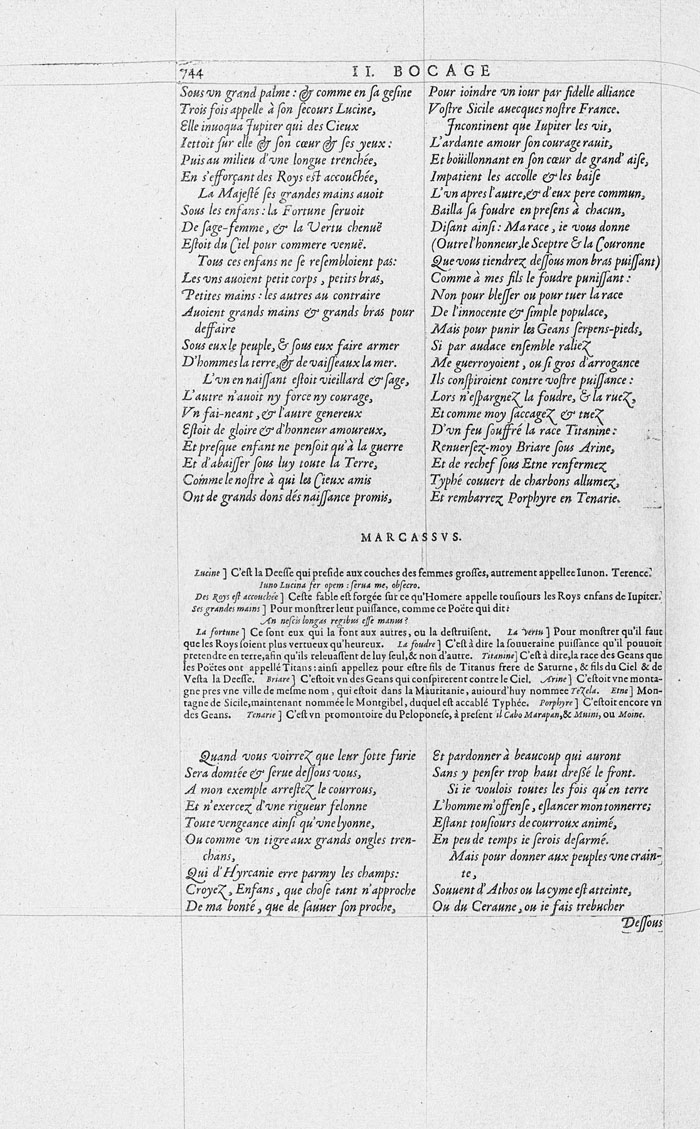 744 II. BOCAGE
Sous vn grand palme : & comme en sa gesine
Trois fois appelle à son secours Lucine,
Elle inuoqua Jupiter qui des Cieux
Iettoit sur elle & son cœur & ses yeux :
Puis au milieu d'vne longue trenchée,
En s'efforçant des Roys est accouchée,
La Majesté ses grandes mains auoit
Sous les enfans : la Fortune seruoit
De sage-femme, & la Vertu chenuë
Estoit du Ciel pour commere venuë.
Tous ces enfans ne se resembloient pas:
Les vns auoient petit corps, petits bras,
Petites mains : les autres au contraire
Auoient grands mains & grands bras pour
deffaire
Sous eux le peuple, & sous eux faire armer
D'hommes la terre, & de vaisseaux la mer.
L'vn en naissant estoit vieillard & sage,
L'autre n'auoit ny force ny courage,
Vn fai-neant, & l'autre genereux
Estoit de gloire & d'honneur amoureux,
Et presque enfant ne pensoit qu'à la guerre
Et d'abaisser sous luy toute la Terre,
Comme le nostre à qui les Cieux amis
Ont de grands dons dés naissance promis,
Pour ioindre vn iour par fidelle alliance
Vostre Sicile auecques nostre France.
Incontinent que Iupiter les vit,
L'ardante amour son courage rauit,
Et boüillonnant en son cœur de grand' aise,
Impatient les accolle & les baise
L'vn apres l'autre, & d'eux pere commun,
Bailla sa foudre en presens à chacun,
Disant ainsi : Ma race, ie vous donne
(Outre l'honneur, le Sceptre & la Couronne
Que vous tiendrez dessous mon bras puissant)
Comme à mes fils le foudre punissant :
Non pour blesser ou pour tuer la race
De l'innocente & simple populace,
Mais pour punir les Geans serpens-pieds,
Si par audace ensemble raliez
Me guerroyoient, ou si gros d'arrogance
Ils conspiroient contre vostre puissance :
Lors n'espargnez la foudre, & la ruez,
Et comme moy saccagez & tuez
D'vn feu souffré la race Titanine :
Renuersez-moy Briare sous Arine,
Et de rechef sous Etne renfermez
Typhé couuert de charbons allumez,
Et rembarrez Porphyre en Tenarie.
MARCASSVS.
Lucine ] C'est la Deesse qui preside aux couches des femmes grosses, autrement appellee Iunon. Terence.
Iuno Lucina fer opem : serua me, obsecro.
Des Roys est accouchée ] Ceste fable est forgée sur ce qu'Homere appelle tousiours les Roys enfans de Iupiter.
Ses grandes mains ] Pour monstrer leur puissance, comme ce Poëte qui dit :
An nescis longas regibus esse manus ?
La fortune ] Ce sont eux qui la font aux autres, ou la destruisent. La Vertu ] Pour monstrer qu'il faut
que les Roys soient plus vertueux qu'heureux. La foudre ] C'est à dire la souueraine puissance qu'il pouuoit
pretendre en terre, afin qu'ils releuassent de luy seul, & non d'autre. Titanine ] C'est à dire, la race des Geans que
les Poëtes ont appellé Titans : ainsi appellez pour estre fils de Titanus frere de Saturne, & fils du Ciel & de
Vesta la Deesse. Briare ] C'estoit vn des Geans qui conspirerent contre le Ciel. Arine ] C'estoit vne monta-
gne pres vne ville de mesme nom, qui estoit dans la Mauritanie, auiourd'huy nommee Tezela. Etne ] Mon-
tagne de Sicile, maintenant nommée le Montgibel, duquel est accablé Typhée. Porphyre ] C'estoit encore vn
des Geans. Tenarie ] C'est vn promontoire du Peloponese, à present il Cabo Marapan, & Muini, ou Moine.
Quand vous voirrez que leur sotte furie
Sera domtée & serue dessous vous,
A mon exemple arrestez le courrous,
Et n'exercez d'vne rigueur felonne
Toute vengeance ainsi qu'vne lyonne,
Ou comme vn tigre aux grands ongles tren-
chans,
Qui d'Hyrcanie erre parmy les champs:
Croyez, Enfans, que chose tant n'approche
De ma bonté, que de sauuer son proche,
Et pardonner à beaucoup qui auront
Sans y penser trop haut dressé le front.
Si ie voulois toutes les fois qu'en terre
L'homme m'offense, eslancer mon tonnerre;
Estant tousiours de courroux animé,
En peu de temps ie serois desarmé.
Mais pour donner aux peuples vne crain-
te,
Souuent d'Athos ou la cyme est atteinte,
Ou du Ceraune, ou ie fais trebucher
Dessous